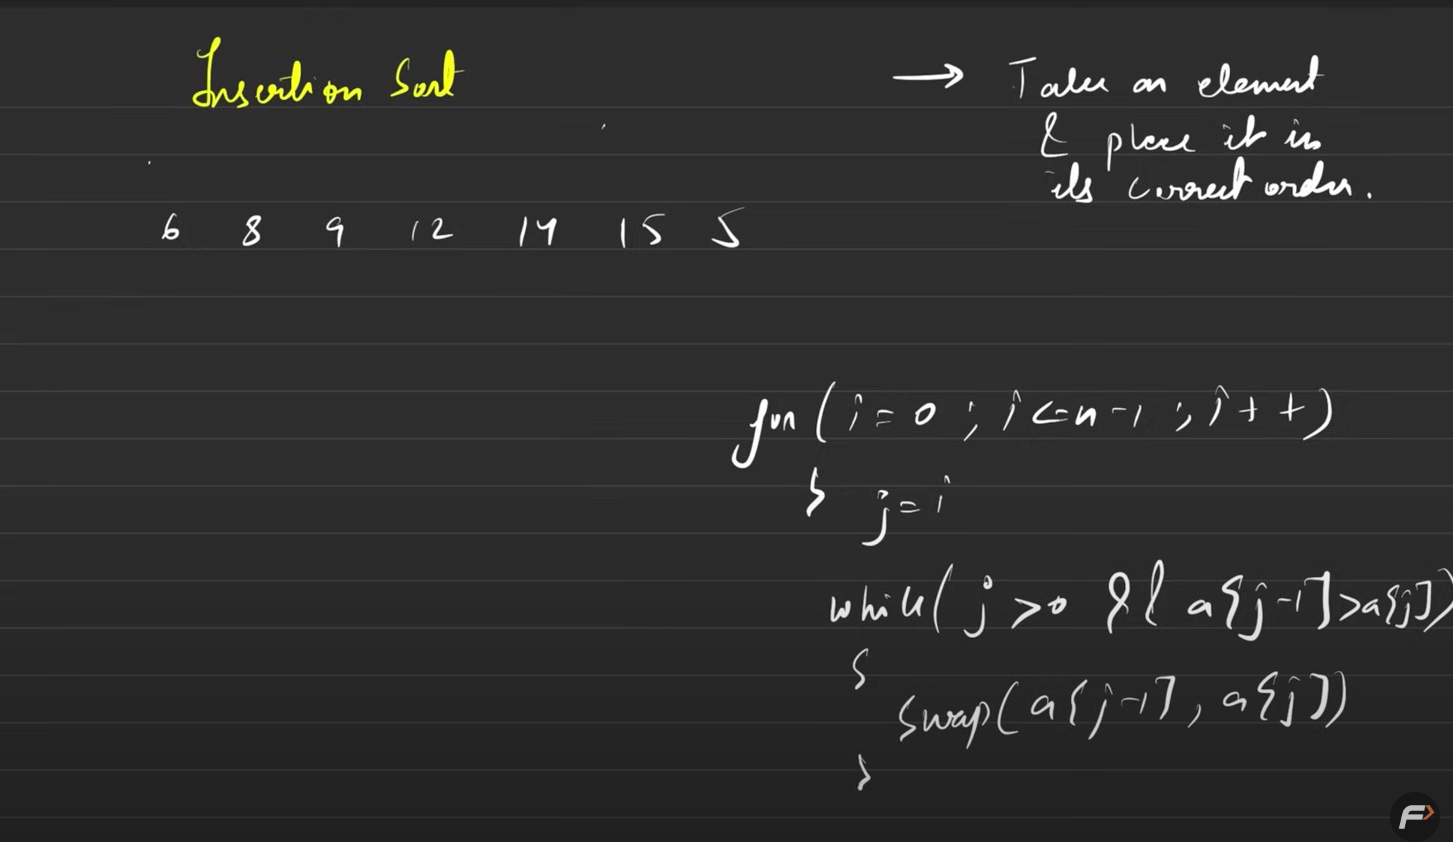 Insertion Sort
→ Takes an element
& place it in
its correct order.
6 8 9 12 14 15 5
for (i = 0 ; i <= n-1 ; i++)
{ j = i
while (j > 0 && a[j-1] > a[j])
{
swap(a[j-1], a[j])
}